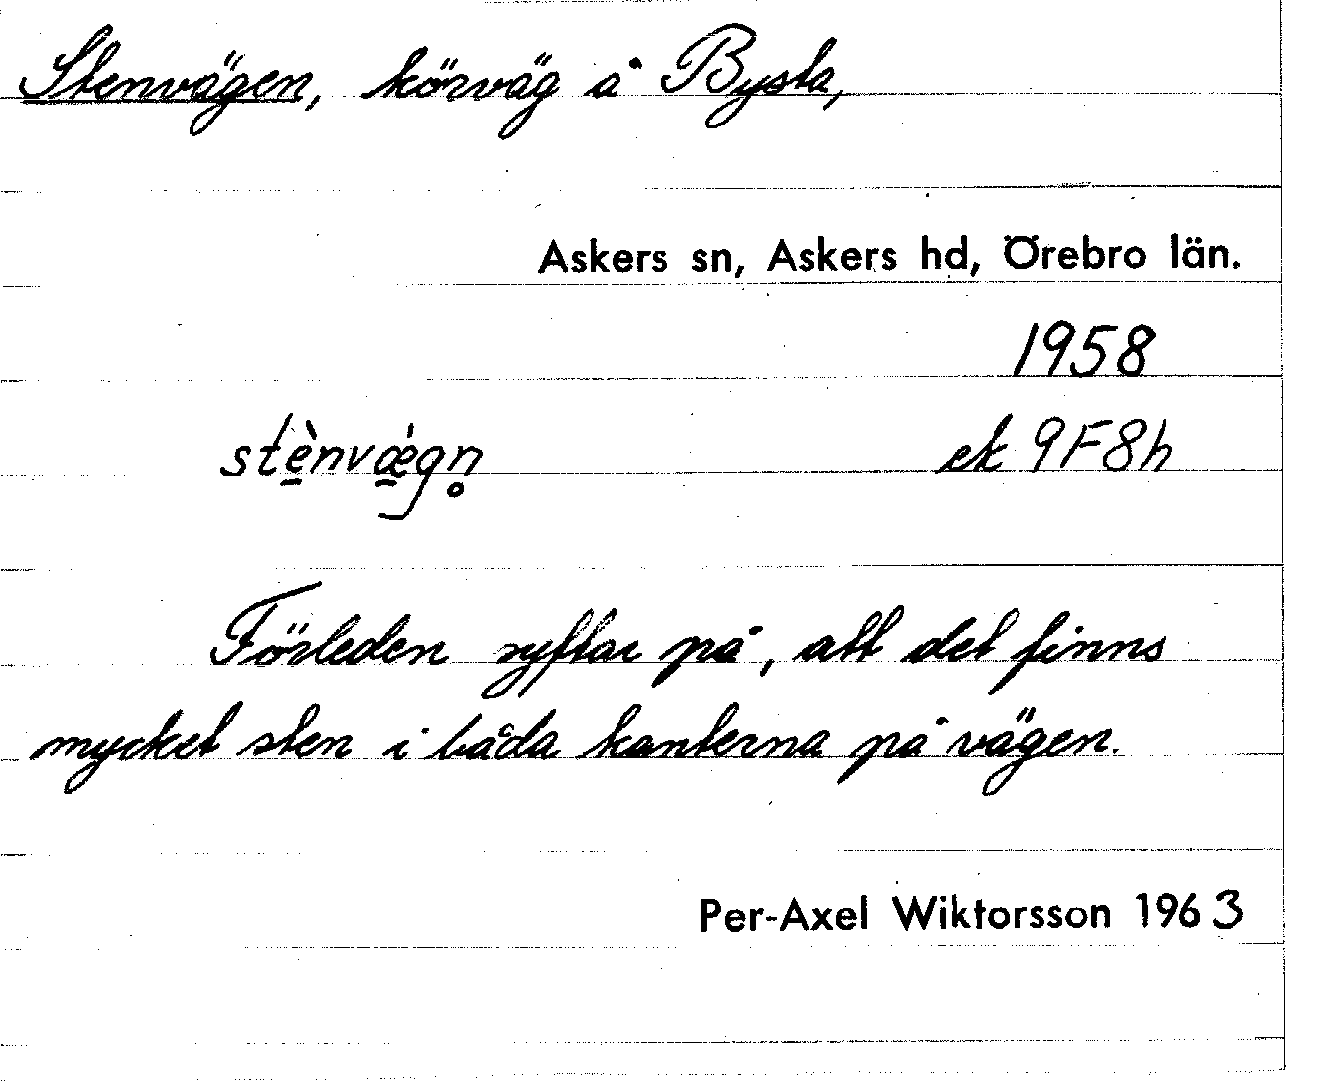 Stenvägen, körväg å Bysta,
Askers sn, Askers hd, Örebro län.
1958
stè̱nvǽ̱gn̥ ek 9F8h
Förleden syftar på, att det finns
mycket sten i båda kanterna på vägen.
Per-Axel Wiktorsson 1963